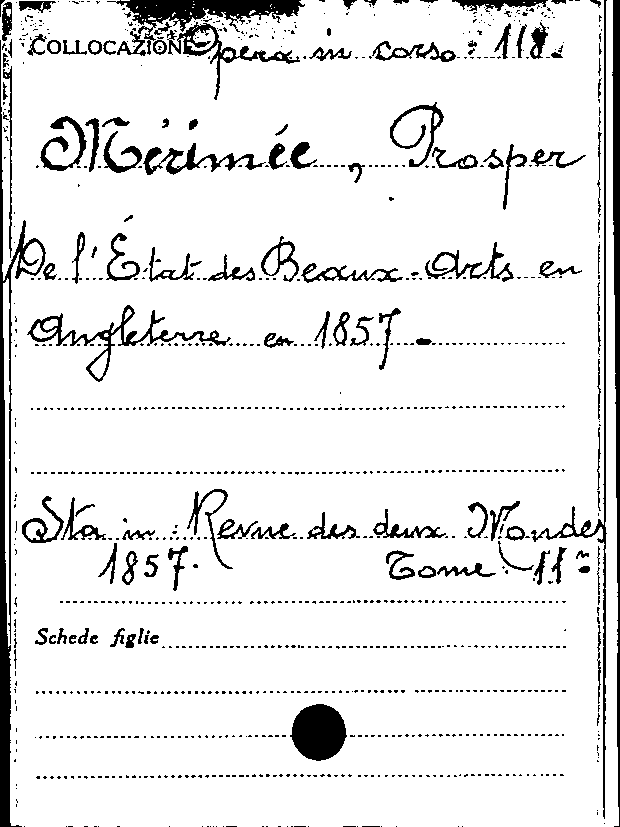 COLLOCAZIONE Opera in corso: 118.
Mérimée, Prosper
De l'État des Beaux-Arts en
Angleterre en 1857.
Sta in: Revue des deux Mondes
1857. Tome 11°
Schede figlie